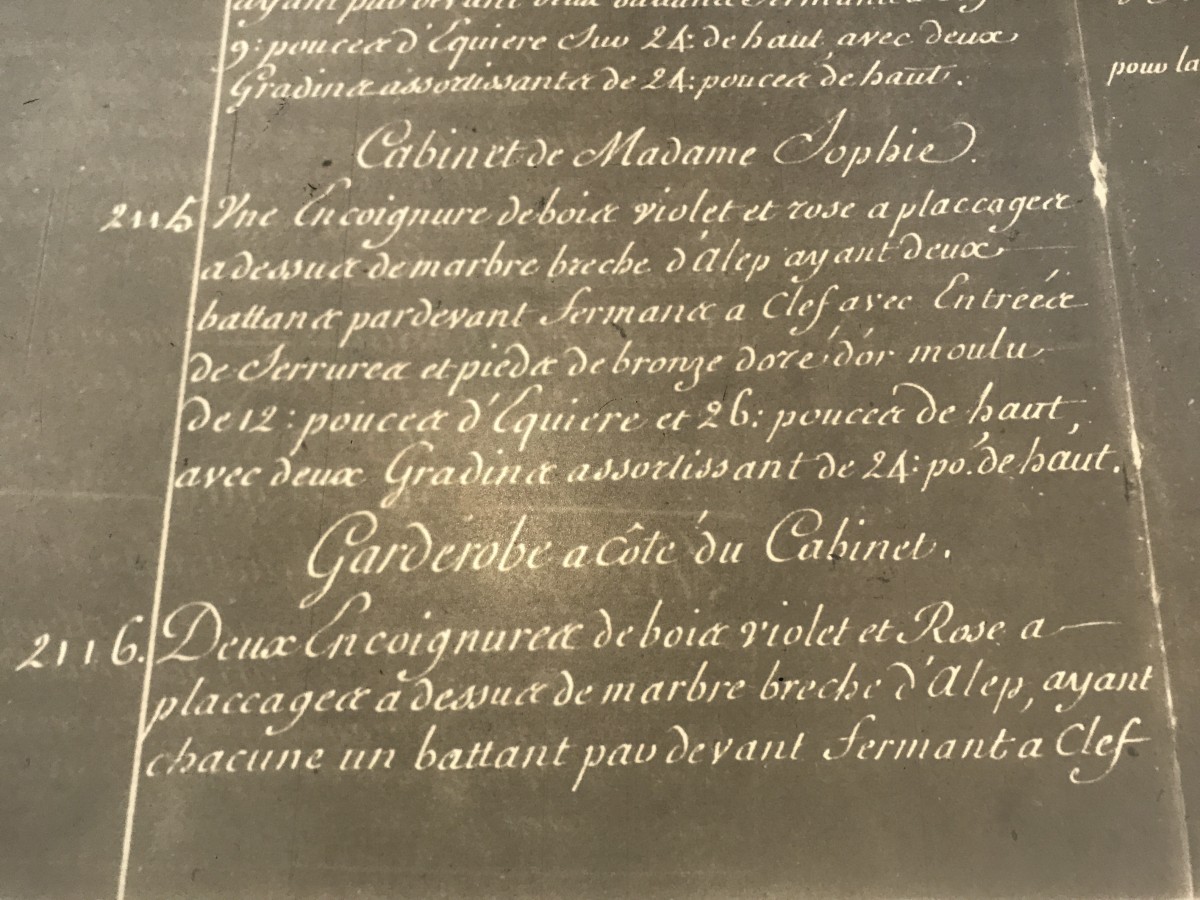 ayant par devant deux battans fermans a Clef
9: pouces d'Equiere Sur 24: de haut, avec deux
Gradins assortissants de 24: pouces de haut.
pour la
Cabinet de Madame Sophie.
2115 Une Encoignure de bois violet et rose a placcages
a dessus de marbre breche d'Alep ayant deux
battans par devant fermans a Clef avec Entreés
de Serrures et pieds de bronze doré d'or moulu
de 12: pouces d'Equiere et 26: pouces de haut,
avec deux Gradins assortissant de 24: po. de haut.
Garderobe a Côté du Cabinet.
2116. Deux Encoignures de bois violet et Rose a
placcages à dessus de marbre breche d'Alep, ayant
chacune un battant par devant fermant a Clef